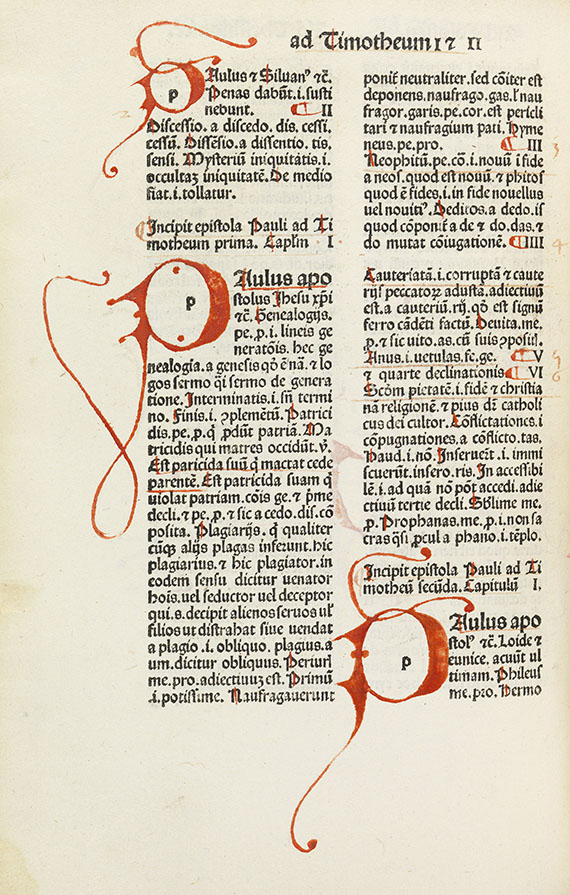 ad Timotheum I ⁊ II
p
Aulus ⁊ Siluanꝰ ⁊c̄.
Penas dabūt .i. susti
nebunt. II
Discessio. a discedo. dis. cessi.
cessū. Dissēsio. a dissentio. tis.
sensi. Mysteriū iniquitatis .i.
occultaꝫ iniquitatē. De medio
fiat .i. tollatur.
Incipit epistola Pauli ad Ti
motheum prima. Caplm̄ . I
p
Aulus apo
stolus Jhesu xp̄i
⁊c̄. Genealogijs.
pe. p. i. lineis ge
neratōis. hec ge
nealogia. a genesis qō ē nā. ⁊ lo
gos sermo q̄si sermo de genera
tione. Interminatis .i. sn̄ termi
no. Finis .i. ꝯplemētū. Patrici
dis. pe. p. q̄ ꝑdūt patriā. Ma
tricidis qui matres occidūt. ꝟ.
Est paricida suū q̄ mactat cede
parentē. Est patricida suam q̄
violat patriam. cōis ge. ⁊ p̄me
decli. ⁊ pe. p. ⁊ sic a cedo. dis. cō
posita. Plagiarijs. q̄ qualiter
cūqꝫ alijs plagas inferunt. hic
plagiarius. ⁊ hic plagiator. in
eodem sensu dicitur venator
hoīs. vel seductor vel deceptor
qui. s. decipit alienos seruos ul̄
filios ut distrahat siue vendat
a plagio .i. obliquo. plagius. a
um. dicitur obliquus. Periuri
me. pro. adiectiuuꝫ est. Primū
.i. potissime. Naufragauerunt
ponit̄ neutraliter. sed cōiter est
deponens. naufrago. gas. l̄ nau
fragor. garis. pe. cor. est pericli
tari ⁊ naufragium pati. Hyme
neus. pe. pro. III
Neophitū. pe. cō .i. nouū ī fide
a neos. quod est nouū. ⁊ phitos
quod ē fides .i. in fide nouellus
uel nouitꝰ. Deditos. a dedo. is
quod cōponit̄ a de ⁊ do. das. ⁊
do mutat cōiugationē. IIII
Cauteriatā .i. corruptā ⁊ caute
rijs peccatoꝝ adustā. adiectiuū
est. a cauteriū. rij. qō est signū
ferro cādēti factū. Deuita. me.
p. ⁊ sic vito. as. cū suis ꝯpositꝭ.
Anus .i. uetulas. fe. ge. V
⁊ quarte declinationis VI
Scd̄m pietatē .i. fidē ⁊ christia
nā religionē. ⁊ pius dn̄ catholi
cus dei cultor. Cōflictationes .i
cōpugnationes. a conflicto. tas.
Haud .i. nō. Inseruert̄ .i. immi
scuerūt. insero. ris. In accessibi
lē .i. ad quā nō pōt accedi. adie
ctiuū tertie decli. Sublime. me.
p. Prophanas. me. p. i. non sa
cras q̄si ꝓcul a phano .i. tēplo.
Incipit epistola Pauli ad Ti
motheū secūda. Capitulū I.
p
Aulus apo
stolꝰ ⁊c̄. Loide ⁊
eunice. acuūt ul
timam. Phileus
me. pro. Hermo